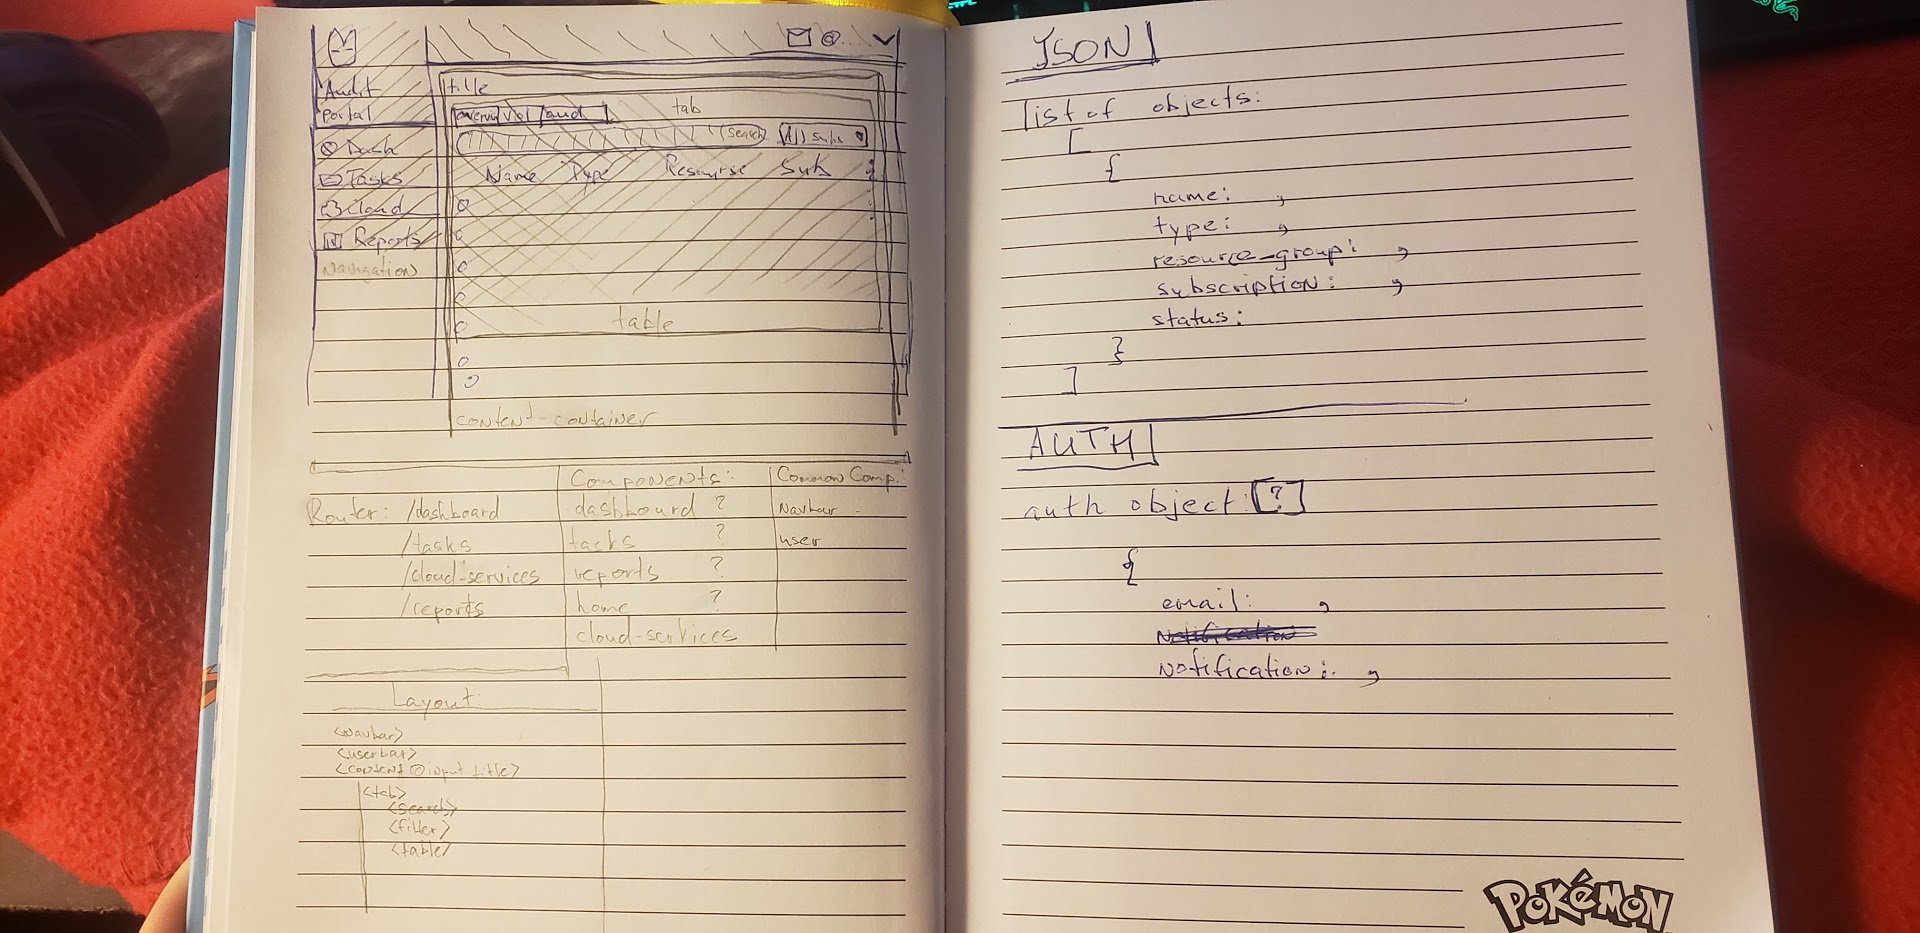 Audit
Portal
Dash
Tasks
Cloud
Reports
Navigation
@...
title
tab
aud
search
All subs
Name Type Resourse Sub
table
content-container
Components: Common Comp.:
Router: /dashboard dashbourd ? Navbar -
/tasks tasks ? user
/cloud-services reports ?
/reports home ?
cloud-services
Layout:
<Navbar>
<userbar>
<content @input title>
<tab>
<search>
<filter>
<table>
JSON
list of objects:
[
{
name: ,
type: ,
resource_group: ,
subscription: ,
status:
}
]
AUTH
auth object: ?
{
email: ,
Notification
Notification: ,
POKéMON